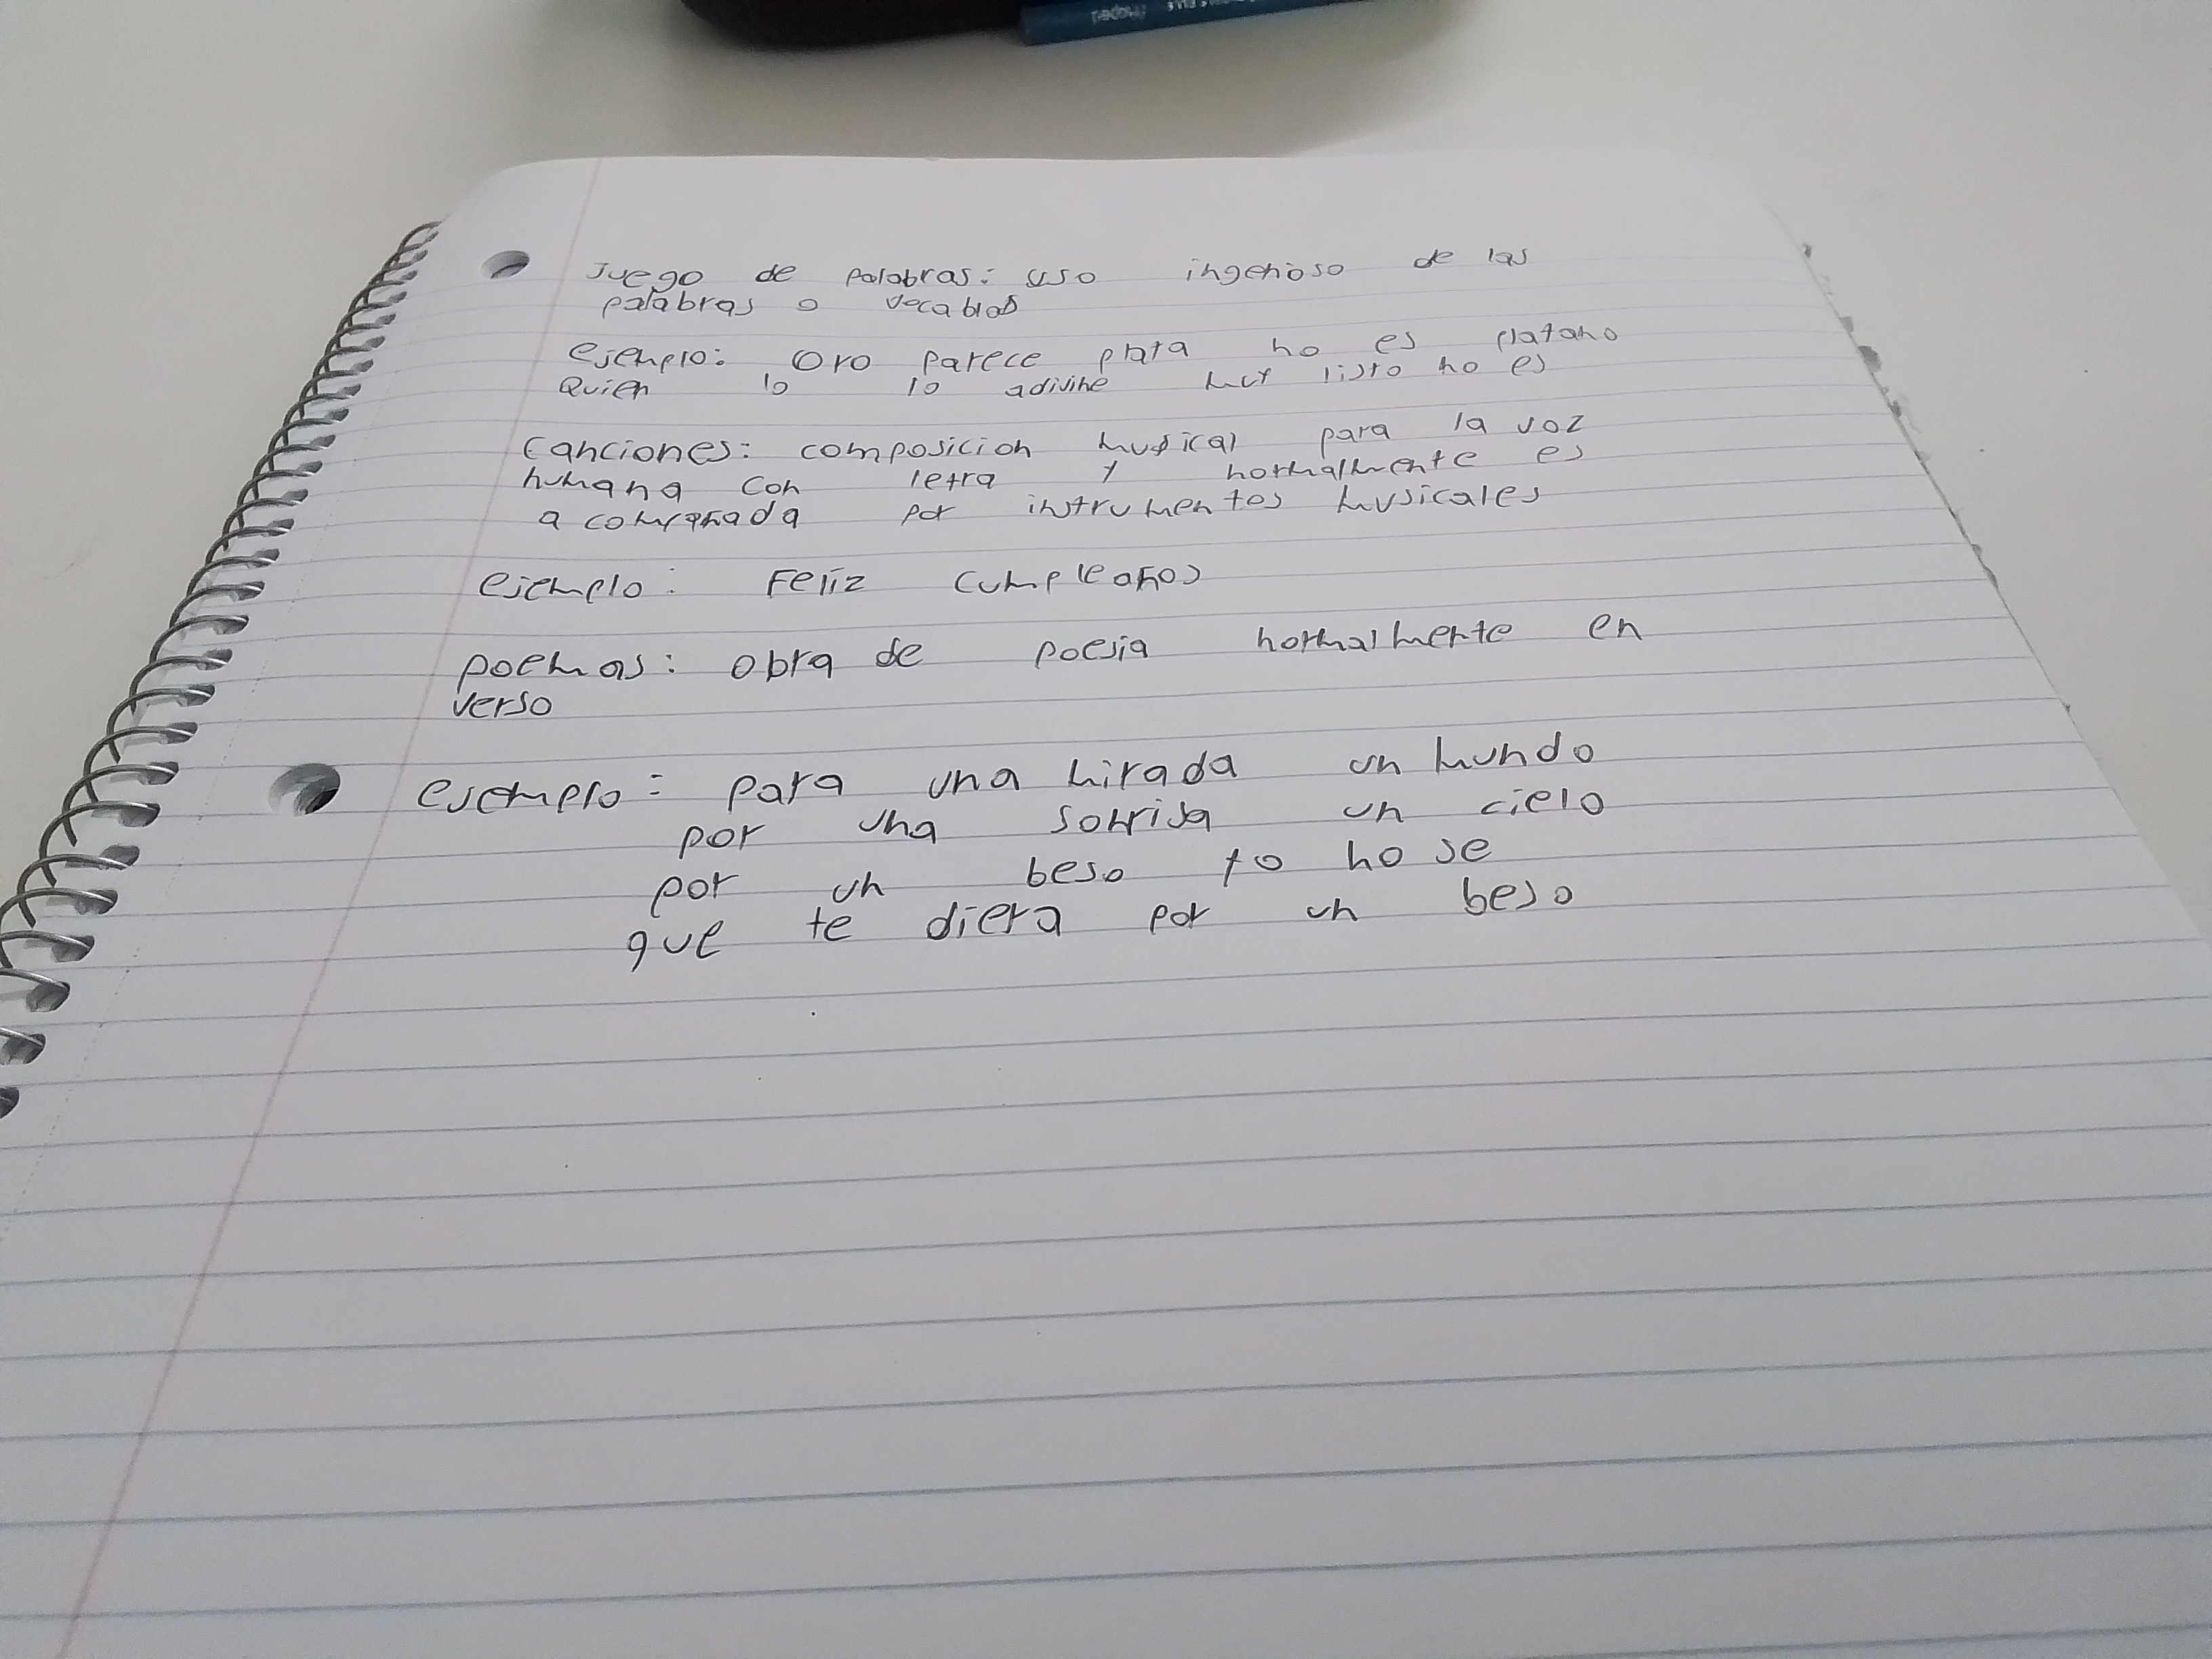 Juego de palabras: uso ingenioso de las
palabras o vocablos
ejemplo: Oro parece plata no es platano
Quien lo lo adivine muy listo no es
Canciones: composicion musical para la voz
humana con letra y normalmente es
a compañada por instrumentos musicales
ejemplo: Feliz cumpleaños
poemas: obra de poesia normalmente en
verso
ejemplo: para una mirada un mundo
por una sonrisa un cielo
por un beso yo no se
que te diera por un beso